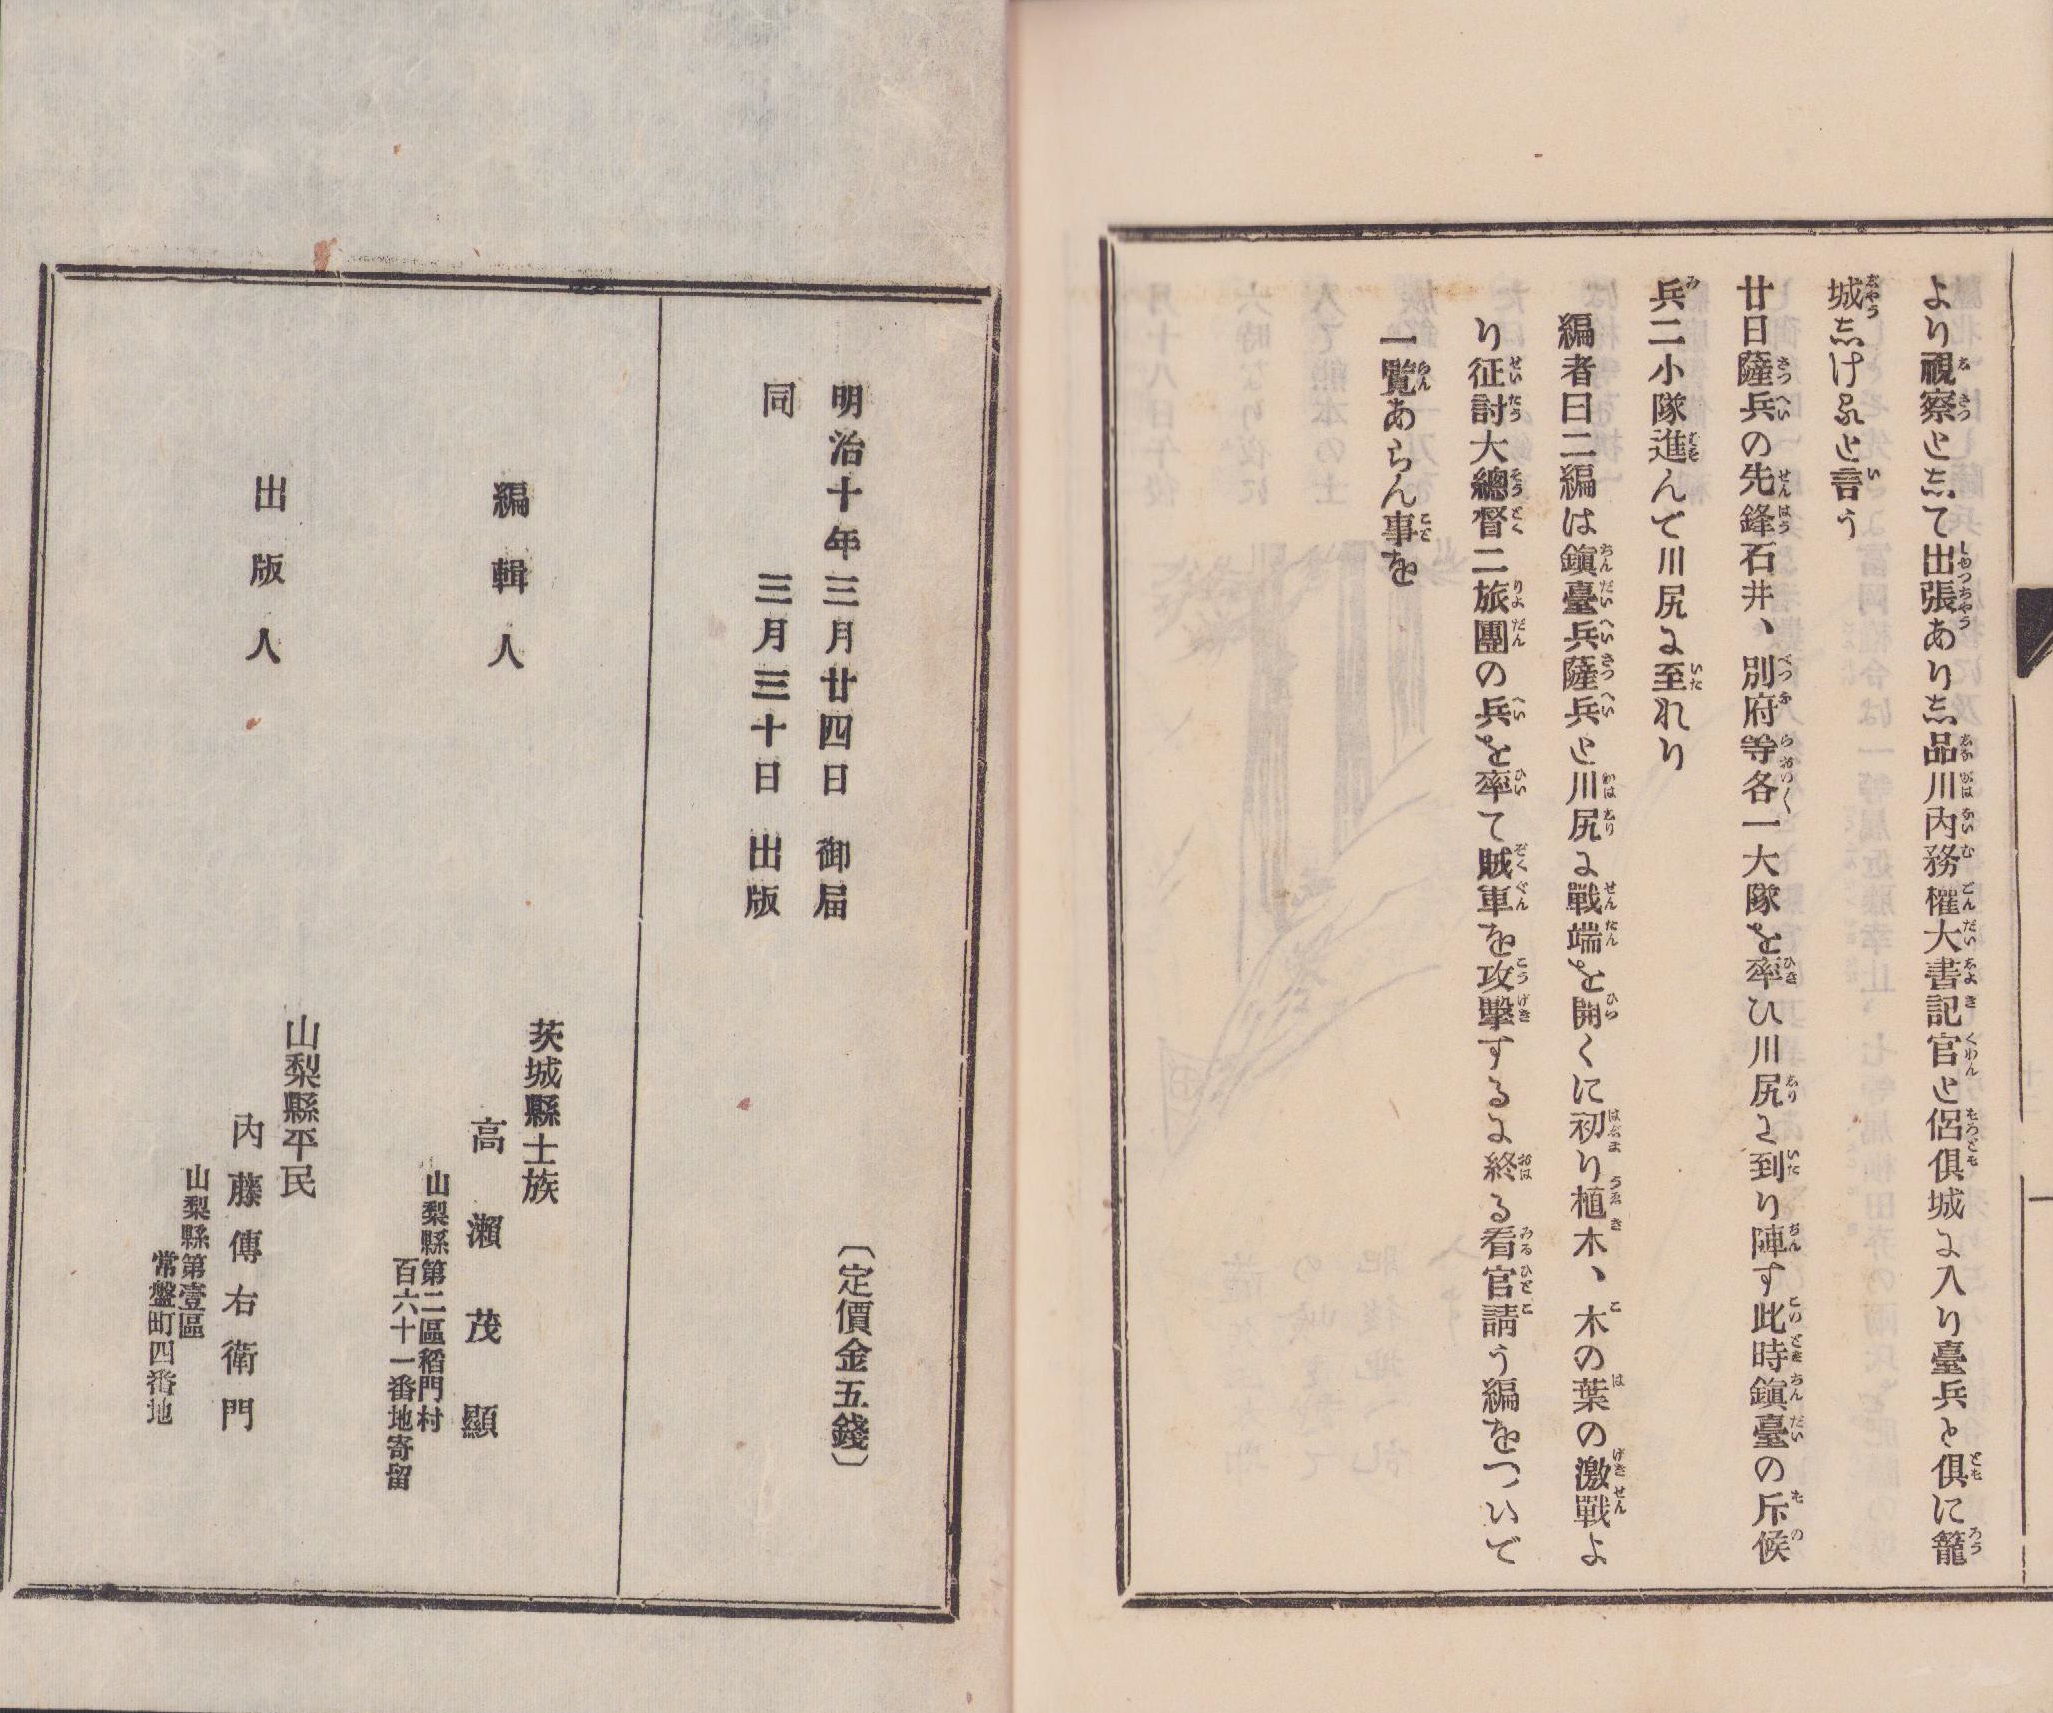 より視察と志て出張あり志品川內務權大書記官と侶俱城に入り臺兵と俱に籠
城志けると言う
廿日薩兵の先鋒石井、別府等各一大隊を率ひ川尻に到り陣す此時鎭臺の斥候
兵二小隊進んで川尻に至れり
編者曰二編は鎭臺兵薩兵と川尻に戰端を開くに初り植木、木の葉の激戰よ
り征討大總督二旅團の兵を率て賊軍を攻擊するに終る看官請う編をついで
一覽あらん事を
明治十年三月廿四日 御届
同 三月三十日 出版
〔定價金五錢〕
編輯人
茨城縣士族
高瀬茂顯
山梨縣第二區稻門村
百六十一番地寄留
出版人
山梨縣平民
內藤傳右衛門
山梨縣第壹區
常盤町四番地